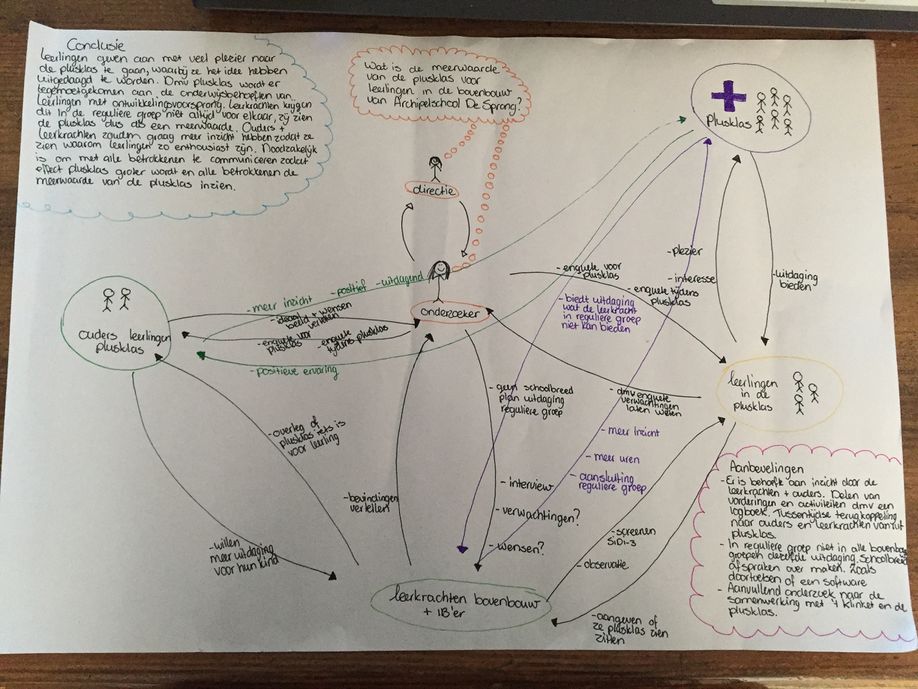 Conclusie
leerlingen geven aan met veel plezier naar
de plusklas te gaan, waarbij ze het idee hebben
uitgedaagd te worden. Dmv plusklas wordt er
tegemoetgekomen aan de onderwijsbehoeften van
leerlingen met ontwikkelingsvoorsprong. Leerkrachten krijgen
dit in de reguliere groep niet altijd voor elkaar, zij zien
de plusklas dus als een meerwaarde. Ouders +
leerkrachten zouden graag meer inzicht hebben zodat ze
zien waarom leerlingen zo enthousiast zijn. Noodzakelijk
is om met alle betrokkenen te communiceren zodat
effect plusklas groter wordt en alle betrokkenen de
meerwaarde van de plusklas inzien.
Wat is de meerwaarde
van de plusklas voor
leerlingen in de bovenbouw
van Archipelschool De Sprong?
Plusklas
directie
onderzoeker
ouders leerlingen
plusklas
- meer inzicht
- positief
- uitdagend
- ideaal
beeld + wensen
vertellen
- enquete voor
plusklas
- enquete
tijdens plusklas
- positieve ervaring
- enquete voor
plusklas
- enquete tijdens
plusklas
- biedt uitdaging
wat de leerkracht
in reguliere groep
niet kan bieden
- plezier
- interesse
- uitdaging
bieden
leerlingen
in de
plusklas
- dmv enquete
verwachtingen
laten weten
- geen schoolbreed
plan uitdaging
reguliere groep
- meer inzicht
- meer uren
- aansluiting
reguliere groep
- overleg of
plusklas iets is
voor leerling
- bevindingen
vertellen
- interview
- verwachtingen?
- wensen?
- willen
meer uitdaging
voor hun kind
- screenen
SiDi-3
- observatie
leerkrachten bovenbouw
+ IB'er
- aangeven of
ze plusklas zien
zitten
Aanbevelingen
- Er is behoefte aan inzicht door de
leerkrachten + ouders. Delen van
vorderingen en activiteiten dmv een
logboek. Tussentijdse terugkoppeling
naar ouders en leerkrachten vanuit
plusklas.
- In reguliere groep niet in alle bovenbouw
groepen dezelfde uitdaging. Schoolbreed
afspraken over maken. Zoals
doortoetsen of een software
- Aanvullend onderzoek naar de
samenwerking met 't klinket en de
plusklas.